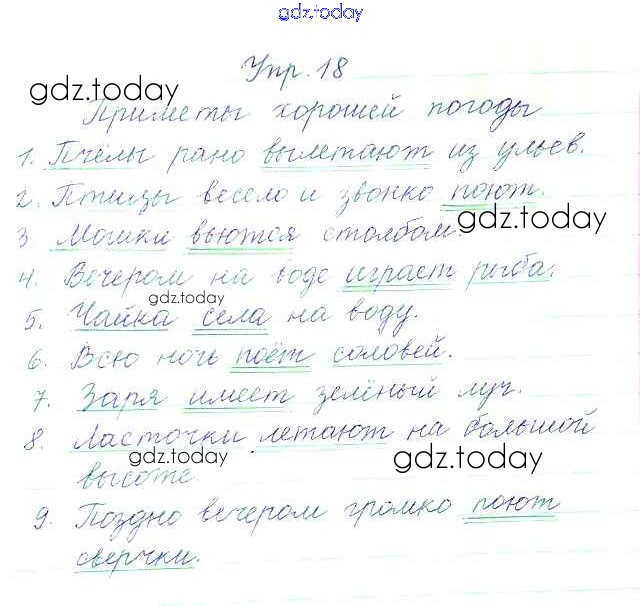 gdz.today
Упр. 18
gdz.today
Приметы хорошей погоды
1. Пчёлы рано вылетают из ульев.
2. Птицы весело и звонко поют.
gdz.today
3. Мошки вьются столбом.
4. Вечером на воде играет рыба.
gdz.today
5. Чайка села на воду.
6. Всю ночь поёт соловей.
7. Заря имеет зелёный луч.
8. Ласточки летают на большой
gdz.today gdz.today
высоте.
9. Поздно вечером громко поют
сверчки.